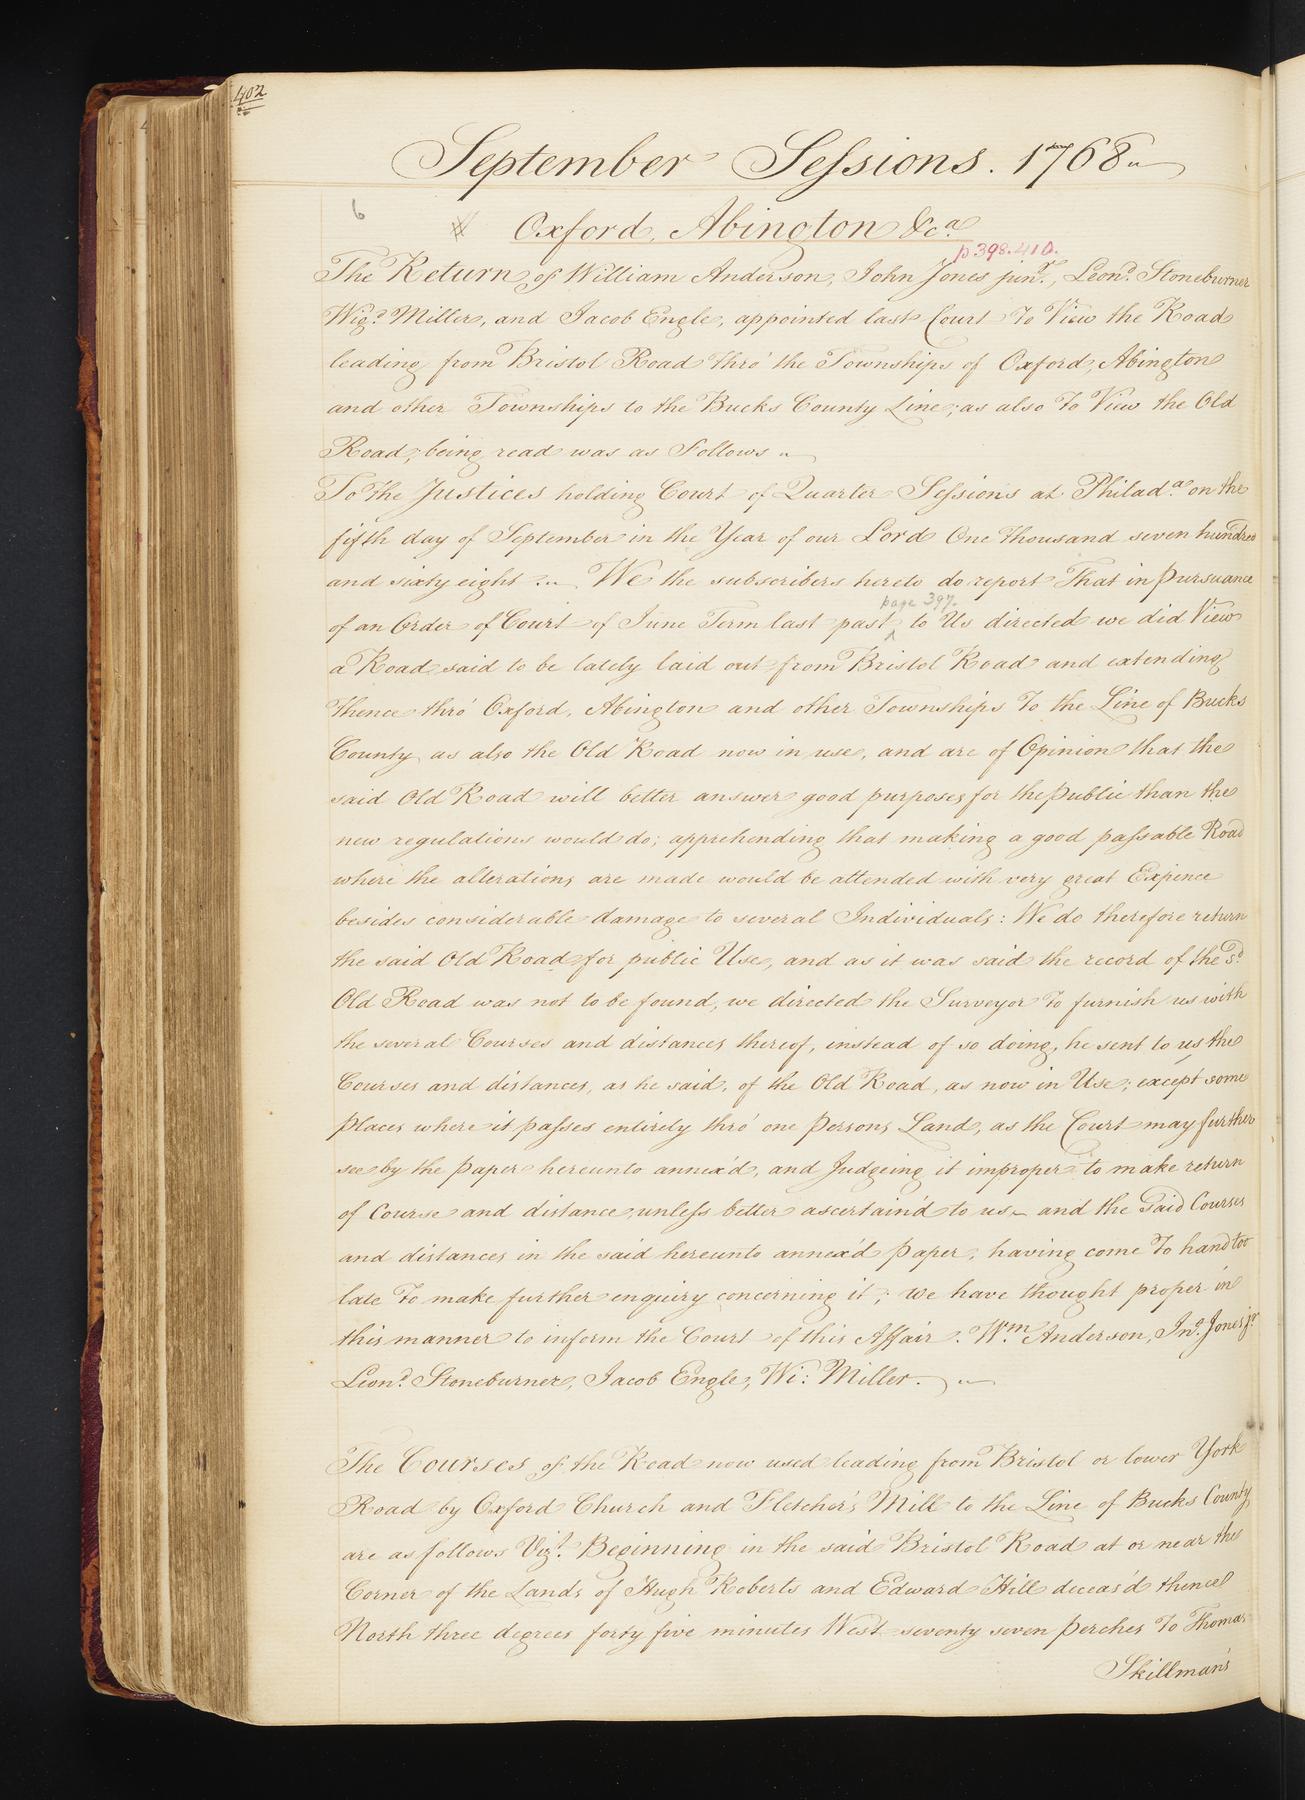 402
September Sessions. 1768
6
Oxford, Abington &c.a
p.398.410.
The Return of William Anderson, John Jones junr., Leond. Stoneburner
Wigd. Miller, and Jacob Engle, appointed last Court To View the Road
leading from Bristol Road thro' the Townships of Oxford, Abington
and other Townships to the Bucks County Line; as also To View the Old
Road; being read was as Follows
To the Justices holding Court of Quarter Sessions at Philada. on the
fifth day of September in the Year of our Lord One thousand seven hundred
and sixty eight We the subscribers hereto do report That in pursuance
page 397.
of an Order of Court of June Term last past ^ to Us directed we did View
a Road said to be lately laid out from Bristol Road and extending
thence thro' Oxford, Abington and other Townships To the Line of Bucks
County as also the Old Road now in use, and are of Opinion that the
said Old Road will better answer good purposes for the public than the
new regulations would do; apprehending that making a good passable Road
where the alterations are made would be attended with very great Expence
besides considerable damage to several Individuals: We do therefore return
the said Old Road for public Use, and as it was said the record of the sd.
Old Road was not to be found, we directed the Surveyor To furnish us with
the several Courses and distances thereof, instead of so doing, he sent to us the
Courses and distances, as he said, of the Old Road, as now in Use; except some
places where it passes entirely thro' one persons Land, as the Court may further
see by the paper hereunto annex'd, and Judgeing it improper to make return
of Course and distance unless better ascertain'd to us and the said Courses
and distances in the said hereunto annex'd paper, having come To hand too
late To make further enquiry concerning it; We have thought proper in
this manner to inform the Court of this Affair. Wm. Anderson, Jno. Jones jr
Leond. Stoneburner, Jacob Engle, Wi: Miller.
The Courses of the Road now used leading from Bristol or lower York
Road by Oxford Church and Fletcher's Mill to the Line of Bucks County
are as follows Vizt. Beginning in the said Bristol Road at or near the
Corner of the Lands of Hugh Roberts and Edward Hill deceas'd thence
North three degrees forty five minutes West seventy seven perches To Thomas
Skillman's